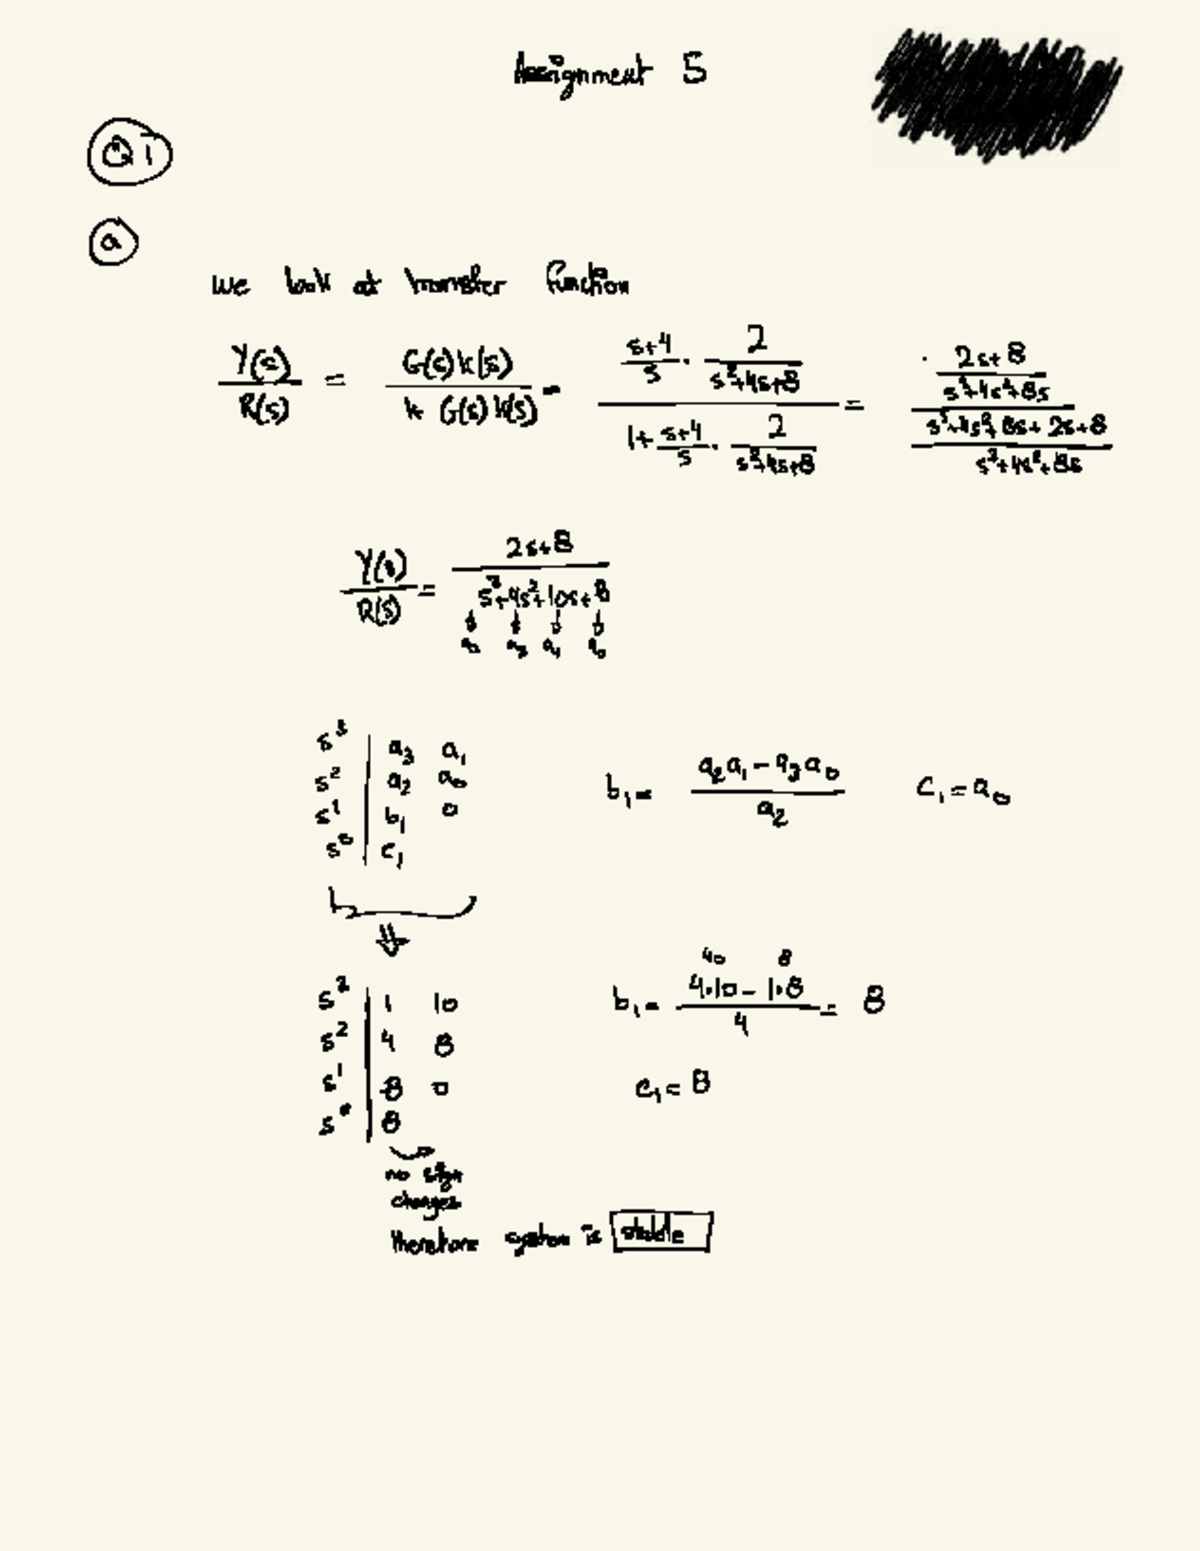 Assignment 5
Q1
a
we look at transfer function
Y(s)/R(s) = G(s)K(s)/1+ G(s)K(s) = (s+4/s · 2/s²+4s+8)/(1+ s+4/s · 2/s²+4s+8) = (2s+8/s³+4s²+8s)/(s³+4s²+8s+2s+8/s³+4s²+8s)
Y(s)/R(s) = 2s+8/s³+4s²+10s+8
a₃ a₂ a₁ a₀
s³ | a₃ a₁
s² | a₂ a₀
s¹ | b₁ 0
s⁰ | c₁
b₁ = a₂a₁ - a₃a₀/a₂ c₁ = a₀
⇓
s³ | 1 10
s² | 4 8
s¹ | 8 0
s⁰ | 8
40 8
b₁ = 4·10 - 1·8/4 = 8
c₁ = 8
no sign
changes
therefore system is stable